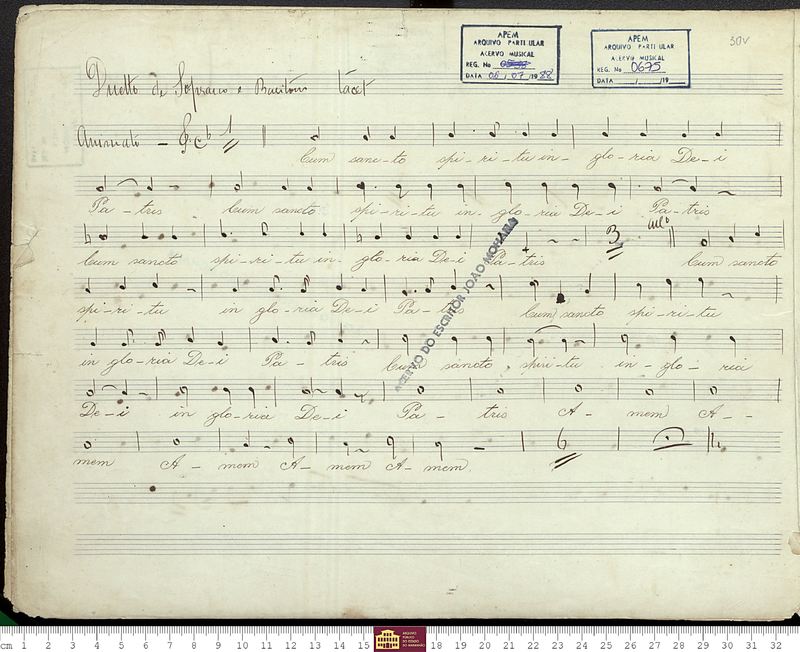 APEM
ARQUIVO PARTICULAR
ACERVO MUSICAL
REG. No
DATA 06 / 07 / 19 88
APEM
ARQUIVO PARTICULAR
ACERVO MUSICAL
REG. No 0675
DATA / / 19
30v
Duetto de Soprano e Baritono tacet
Animato - 1
Cum sanc-to spi-ri-tu in- glo-ria De-i
Pa-tris Cum sancto spi-ri-tu in- glo-ria De-i Pa-tris
3
Cum sancto spi-ri-tu in- glo-ria De-i Pa-tris Cum sancto
spi-ri-tu in glo-ria De-i Pa-tris Cum sancto spi-ri-tu
in glo-ria De-i Pa-tris Cum sancto spiri-tu in-glo-ria
De-i in glo-ria De-i Pa-tris A-mem A--
mem A-mem A-mem A-mem
6
ACERVO DO ESCRITOR JOÃO MOHANA
cm 1 2 3 4 5 6 7 8 9 10 11 12 13 14 15
ARQUIVO PÚBLICO DO ESTADO DO MARANHÃO
18 19 20 21 22 23 24 25 26 27 28 29 30 31 32